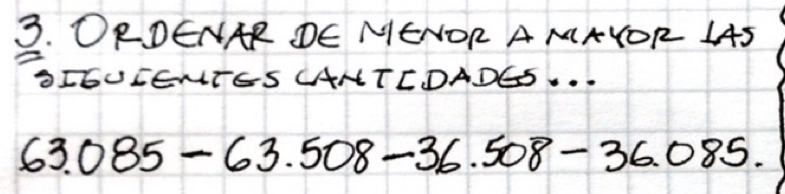 3. ORDENAR DE MENOR A MAYOR LAS
SIGUIENTES CANTIDADES...
63.085 - 63.508 - 36.508 - 36.085.